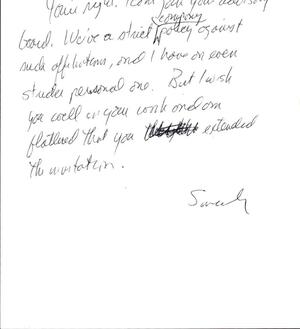 You're right. I can't join your advisory
board. We've a strict company policy against
such affiliations, and I have an even
stricter personal one. But I wish
you well in your work and am
flattered that you extended
the invitation.
Sincerely